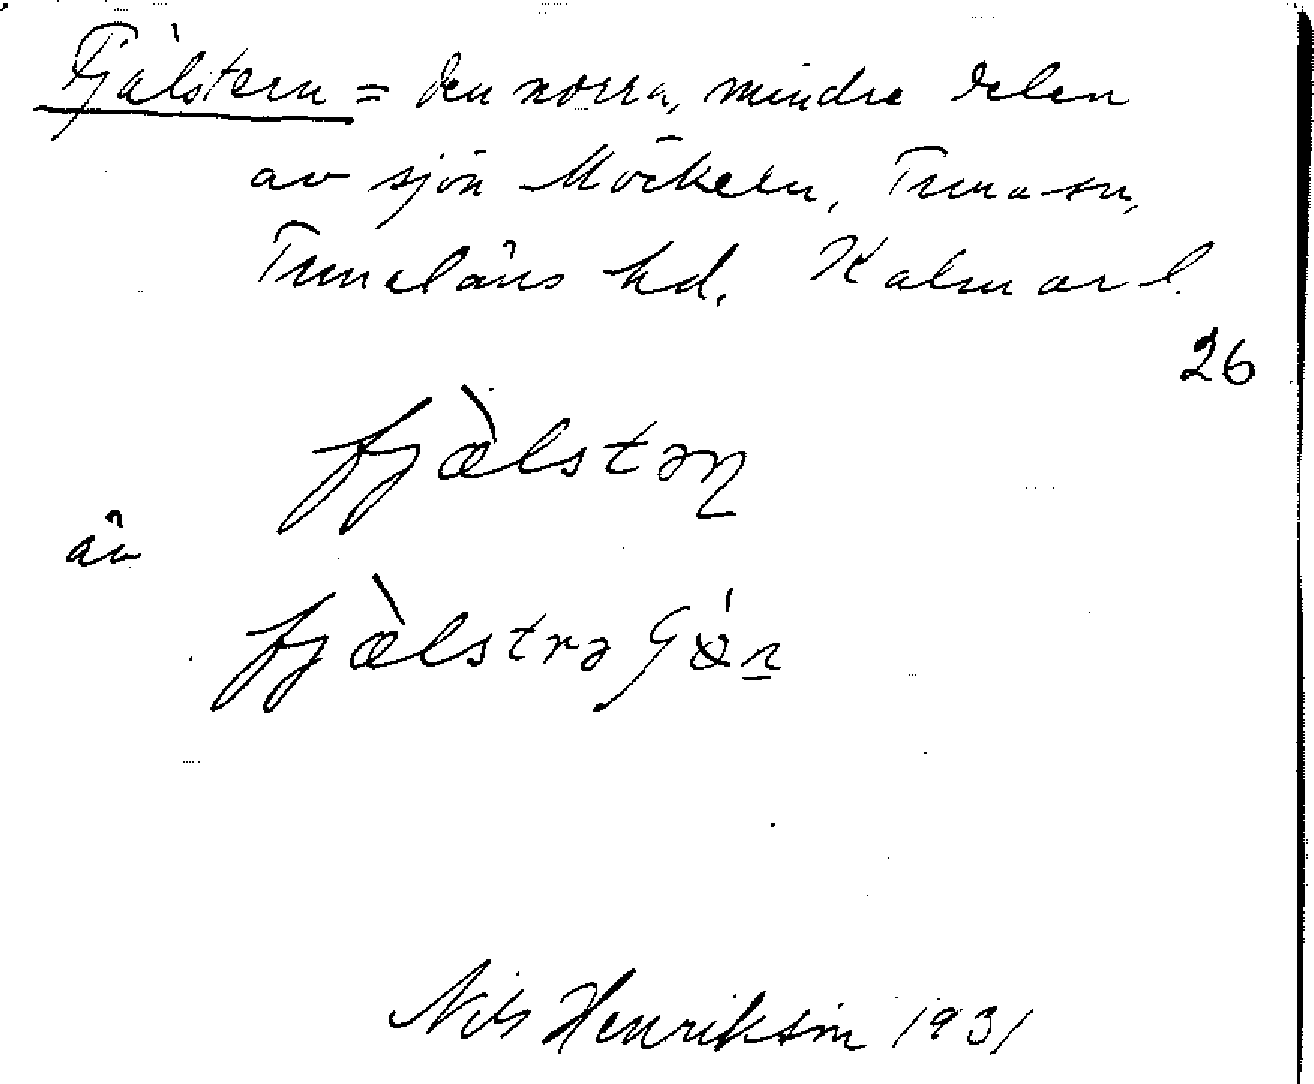 Fjälstern = den norra, mindre delen
av sjön Möckeln, Tuna sn,
Tunaläns hd. Kalmar l.
26
fjæ̀lstəɳ
än
fjæ̀lstrə
Nils Henrikson 1931